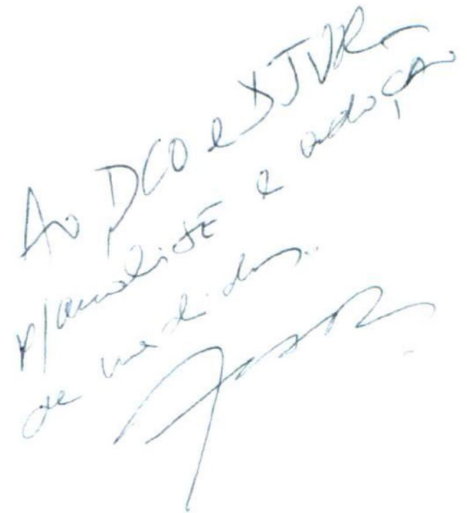 Ao DCO e DJUR
p/ análise e adoção
de medidas.